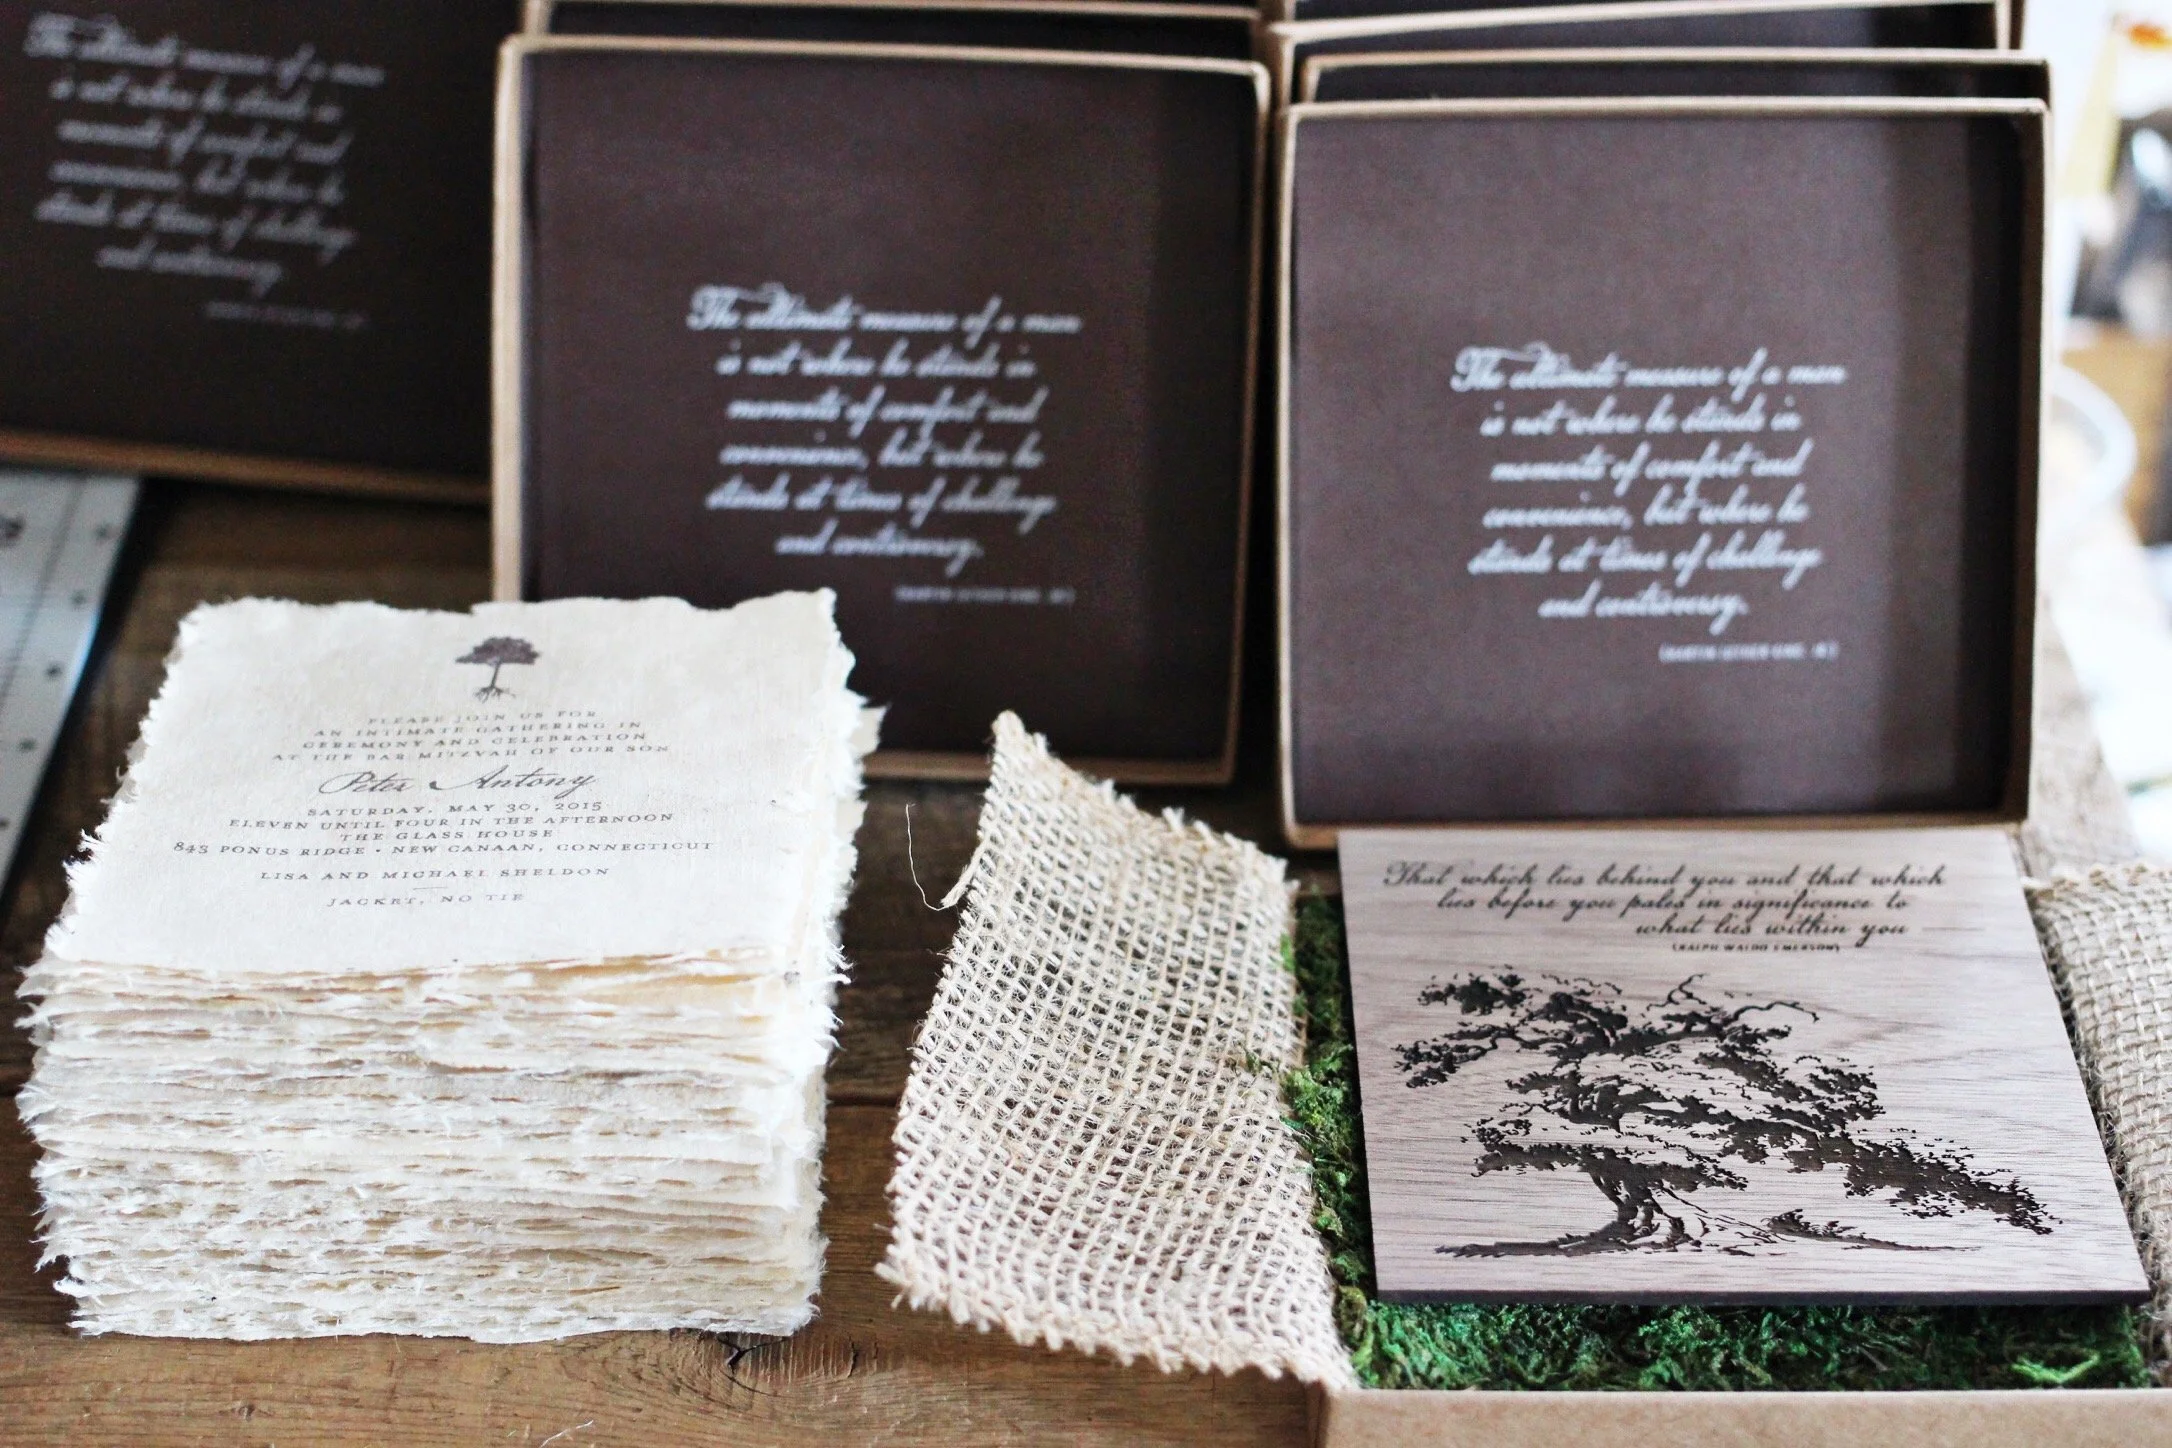 The ultimate measure of a man
is not where he stands in
moments of comfort and
convenience, but where he
stands at times of challenge
and controversy.
The ultimate measure of a man
is not where he stands in
moments of comfort and
convenience, but where he
stands at times of challenge
and controversy.
[MARTIN LUTHER KING, JR]
The ultimate measure of a man
is not where he stands in
moments of comfort and
convenience, but where he
stands at times of challenge
and controversy.
[MARTIN LUTHER KING, JR]
PLEASE JOIN US FOR
AN INTIMATE GATHERING IN
CEREMONY AND CELEBRATION
AT THE BAR MITZVAH OF OUR SON
Peter Antony
SATURDAY, MAY 30, 2015
ELEVEN UNTIL FOUR IN THE AFTERNOON
THE GLASS HOUSE
843 PONUS RIDGE • NEW CANAAN, CONNECTICUT
LISA AND MICHAEL SHELDON
JACKET, NO TIE
That which lies behind you and that which
lies before you pales in significance to
what lies within you
[RALPH WALDO EMERSON]